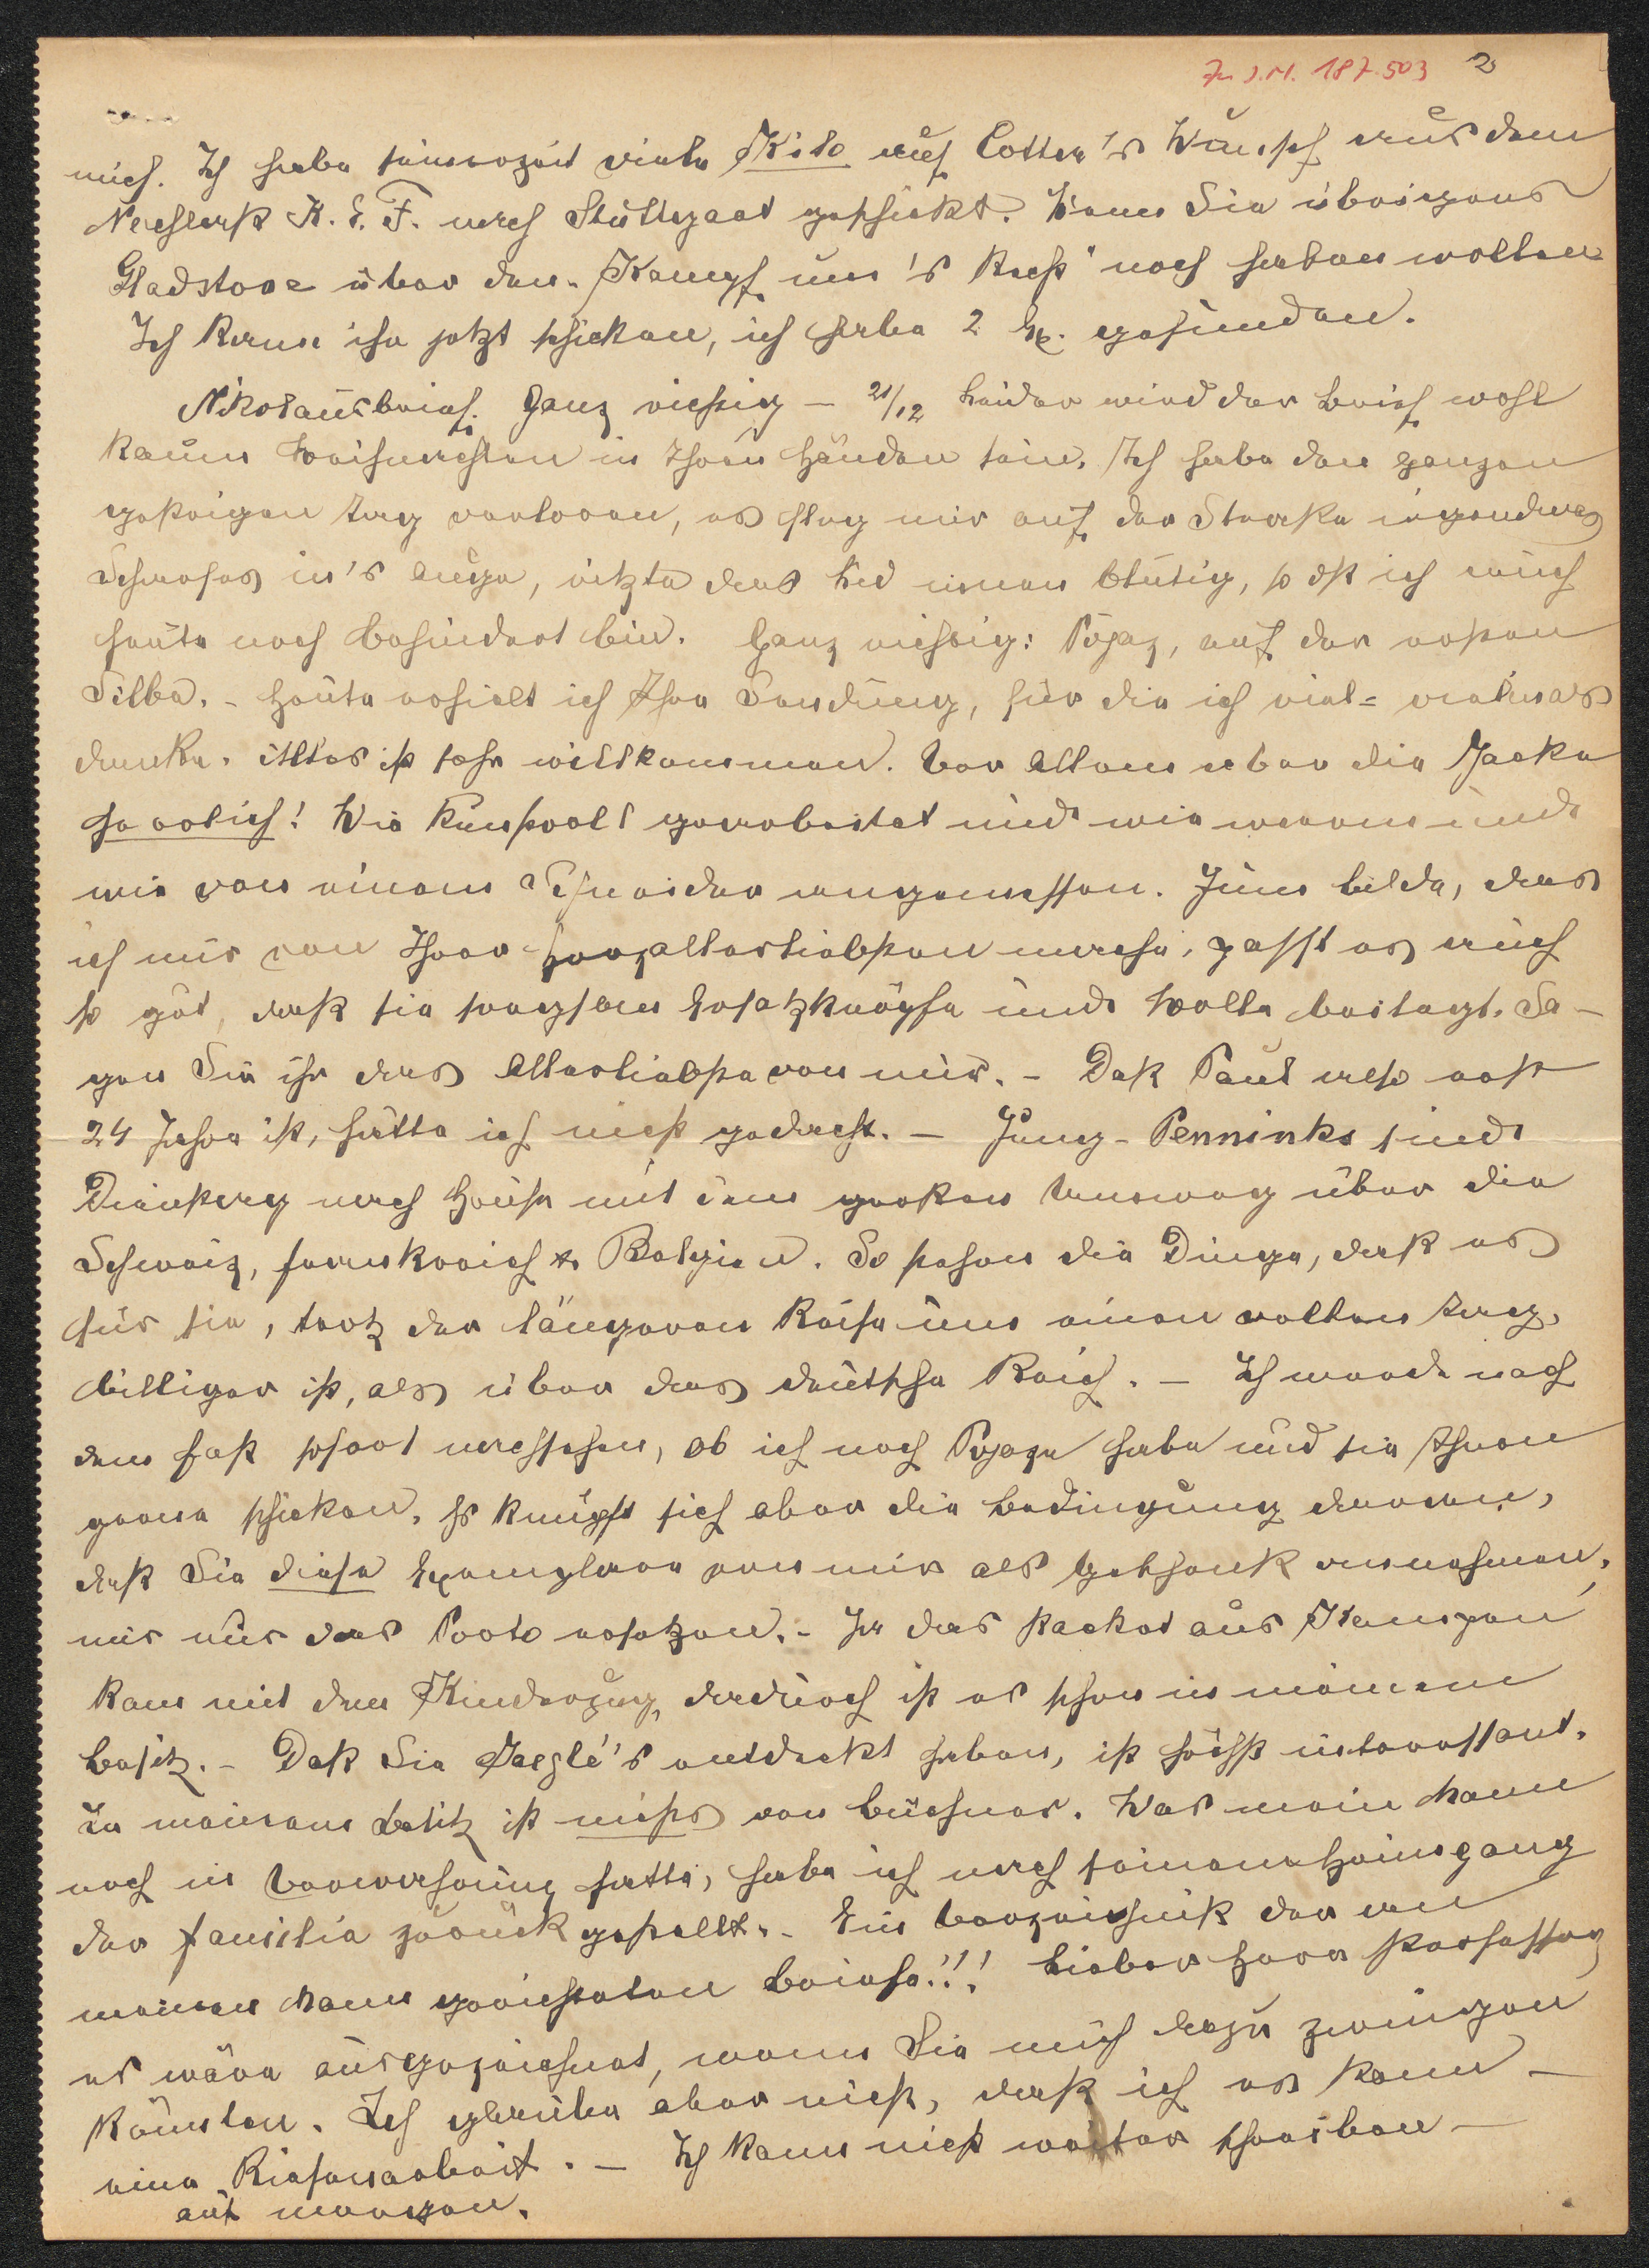 Zu I.N. 187.503 2
mich. Ich habe seinerzeit viele Kilo auf Cotta's Wunsch aus dem
Nachlaß K. E. F. nach Stuttgart geschickt. Wenn Sie übrigens
Gladstone über den „Kampf um's Recht" noch haben wollen
Ich kann ihn jetzt schicken, ich habe 2 Ex. gefunden.
Nikolausbrief. Ganz richtig – 21/12 Leider wird der Brief wohl
kaum Weihnachten in Ihren Händen sein. Ich habe den ganzen
gestrigen Tag verloren, es flog mir auf der Straße irgendwas
Scharfes in's Auge, ritzte das Lid innen blutig, so dß ich auch
heute noch behindert bin. Ganz richtig: Pojaz, auf der ersten
Silbe. – Heute erhielt ich Ihre Sendung, für die ich viel- vielmals
danke. Alles ist sehr willkommen. Vor allem aber die Jacke
herrlich! Wie kunstvoll gearbeitet und wie warm und
wie von einem Schneider angemessen. Zum Bilde, das
ich mir von Ihrer Herzallerliebsten mache, passt es auch
so gut, daß sie sorgsam Ersatzknöpfe und Wolle beilegt. Sa-
gen Sie ihr das Allerliebste von mir. – Daß Paul also erst
24 Jahre ist, hätte ich nicht gedacht. – Jung-Penninks sind
Dienstag nach Hause mit dem großen Umweg über die
Schweiz, Frankreich & Belgien. So stehen die Dinge, daß es
für sie, trotz der längeren Reise um einen vollen Tag,
billiger ist, als über das deutsche Reich. – Ich werde nach
dem Fest sofort nachsehen, ob ich noch Pojaze habe und sie Ihnen
gerne schicken. Es knüpft sich aber die Bedingung daran,
daß Sie diese Exemplare von mir als Geschenk annehmen,
mir nur das Porto ersetzen. – Ja das Packet aus Kempen
kam mit dem Kinderzug, dadurch ist es schon in meinem
Besitz. – Daß Sie Jaeglé's entdeckt haben, ist höchst interessant.
In meinem Besitz ist nichts von Büchner. Was mein Mann
noch in Verwahrung hatte, habe ich nach seinem Heimgang
der Familie zurückgestellt. – Ein Verzeichniß der an
meinen Mann gerichteten Briefe!!! Lieber Herr Professor,
es wäre ausgezeichnet, wenn Sie mich dazu zwingen
könnten. Ich glaube aber nicht, daß ich es kann –
eine Riesenarbeit. – Ich kann nicht weiter schreiben –
auf morgen.